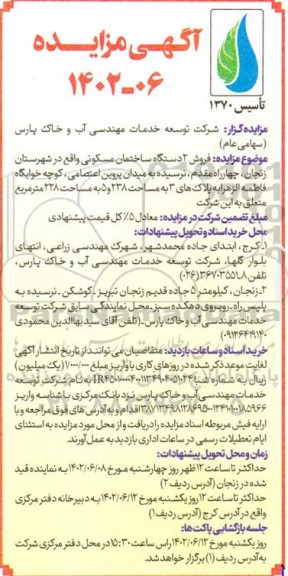 آگهـی مزایـده
۱۴۰۲-۰۶
تأسیس ۱۳۷۰
مزایده‌گزار: شرکت توسعه خدمات مهندسی آب و خاک پارس
(سهامی عام)
موضوع مزایده: فروش ۲ دستگاه ساختمان مسکونی واقع در شهرستان
زنجان، چهارراه مقدم، نرسیده به میدان پروین اعتصامی، کوچه خوابگاه
فاطمه الزهرا به پلاک های ۳ به مساحت ۲۳۸ و ۵ به مساحت ۲۲۸ مترمربع
متعلق به این شرکت
مبلغ تضمین شرکت در مزایده: معادل ۵٪ کل قیمت پیشنهادی
محل خرید اسناد و تحویل پیشنهادات:
۱ـ کرج، ابتدای جاده محمدشهر، شهرک مهندسی زراعی، انتهای
بلوار گلها، شرکت توسعه خدمات مهندسی آب و خاک پارس،
تلفن ۸ـ۳۶۷۰۳۵۵۱ (۰۲۶)
۲ـ زنجان، کیلومتر ۵ جاده قدیم زنجان تبریز ـ کوشکن ـ نرسیده به
پلیس راه ـ روبروی دهکده سبز ـ محل نمایندگی سابق شرکت توسعه
خدمات مهندسی آب و خاک پارس ـ (تلفن آقای سید بهاالدین محمودی
۰۹۱۲۳۶۴۱۹۱۴۰)
خرید اسناد و ساعات بازدید: متقاضیان می توانند از تاریخ انتشار آگهی
لغایت موعد ذکر شده در روزهای کاری با واریز مبلغ ۱/۰۰۰/۰۰۰ (یک میلیون)
ریال به شماره شبا
به نام شرکت توسعه
خدمات مهندسی آب و خاک پارس نزد بانک مرکزی با شناسه واریز
اقدام و به آدرس های فوق مراجعه و با
ارایه فیش مربوطه اسناد مزایده را دریافت و از محل مورد مزایده به استثنای
ایام تعطیلات رسمی در ساعات اداری بازدید به عمل آورند.
زمان و محل تحویل پیشنهادات:
حداکثر تا ساعت ۱۲ ظهر روز چهارشنبه مورخ ۱۴۰۲/۰۶/۰۸ به نماینده قید
شده در زنجان (آدرس ردیف ۲)
حداکثر تا ساعت ۱۲ روز یکشنبه مورخ ۱۴۰۲/۰۶/۱۲ به دبیرخانه دفتر مرکزی
واقع در آدرس کرج (آدرس ردیف ۱)
جلسه بازگشایی پاکت‌ها:
روز یکشنبه مورخ ۱۴۰۲/۰۶/۱۲ راس ساعت ۱۵:۳۰ در محل دفتر مرکزی شرکت
به آدرس ردیف (۱) برگزار خواهد شد.